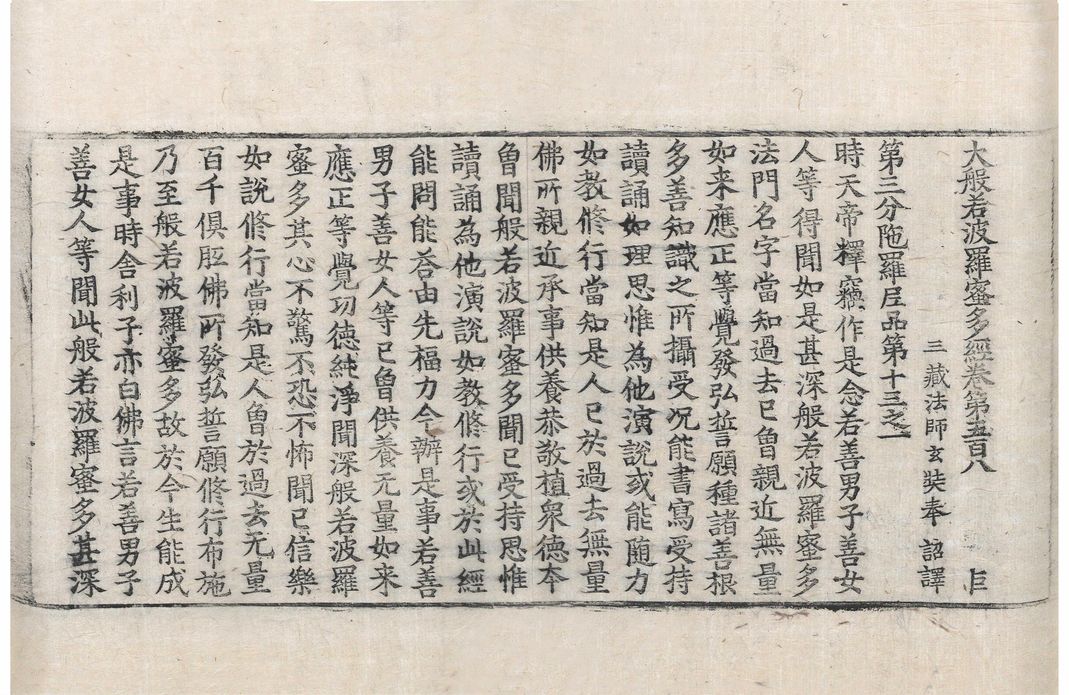 大般若波羅蜜多經卷第五百八　巨
三藏法師玄奘奉　詔譯
第三分陁羅尼品第十三之一
時天帝釋竊作是念若善男子善女
人等得聞如是甚深般若波羅蜜多
法門名字當知過去已曾親近無量
如来應正等覺發弘誓願種諸善根
多善知識之所攝受况能書寫受持
讀誦如理思惟為他演說或能随力
如教修行當知是人已於過去無量
佛所親近承事供養恭敬植衆德夲
曾聞般若波羅蜜多聞已受持思惟
讀誦為他演說如教修行或於此經
能問能荅由先福力今辦是事若善
男子善女人等已曾供養无量如来
應正等覺功德純淨聞深般若波羅
蜜多其心不驚不恐不怖聞已信樂
如說修行當知是人曾於過去无量
百千俱胝佛所發弘誓願修行布施
乃至般若波羅蜜多故於今生能成
是事時舎利子亦白佛言若善男子
善女人等聞此般若波羅蜜多甚深